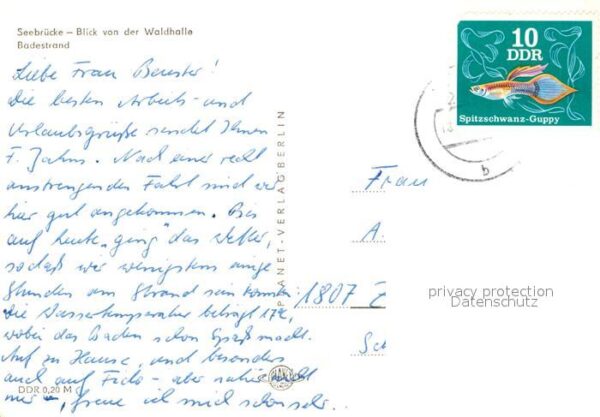 Seebrücke – Blick von der Waldhalle
Badestrand
10
DDR
Spitzschwanz-Guppy
Liebe Frau
Die besten Arbeits- und
Urlaubsgrüße sendet Ihnen
F. Jahns. Nach einer recht
anstrengenden Fahrt sind wir
hier gut angekommen. Bis
auf heute "ging" das Wetter,
sodaß wir wenigstens einige
Stunden am Strand sein konnten.
Die Wassertemperatur beträgt 17°,
wobei das Baden schon Spaß macht.
Auf zu Hause, und besonders
auch auf - aber nicht
mir -, freue ich mich schon sehr.
PLANET-VERLAG BERLIN
Frau
A.
1807 Z
Sc
privacy protection
Datenschutz
DDR 0,20 M